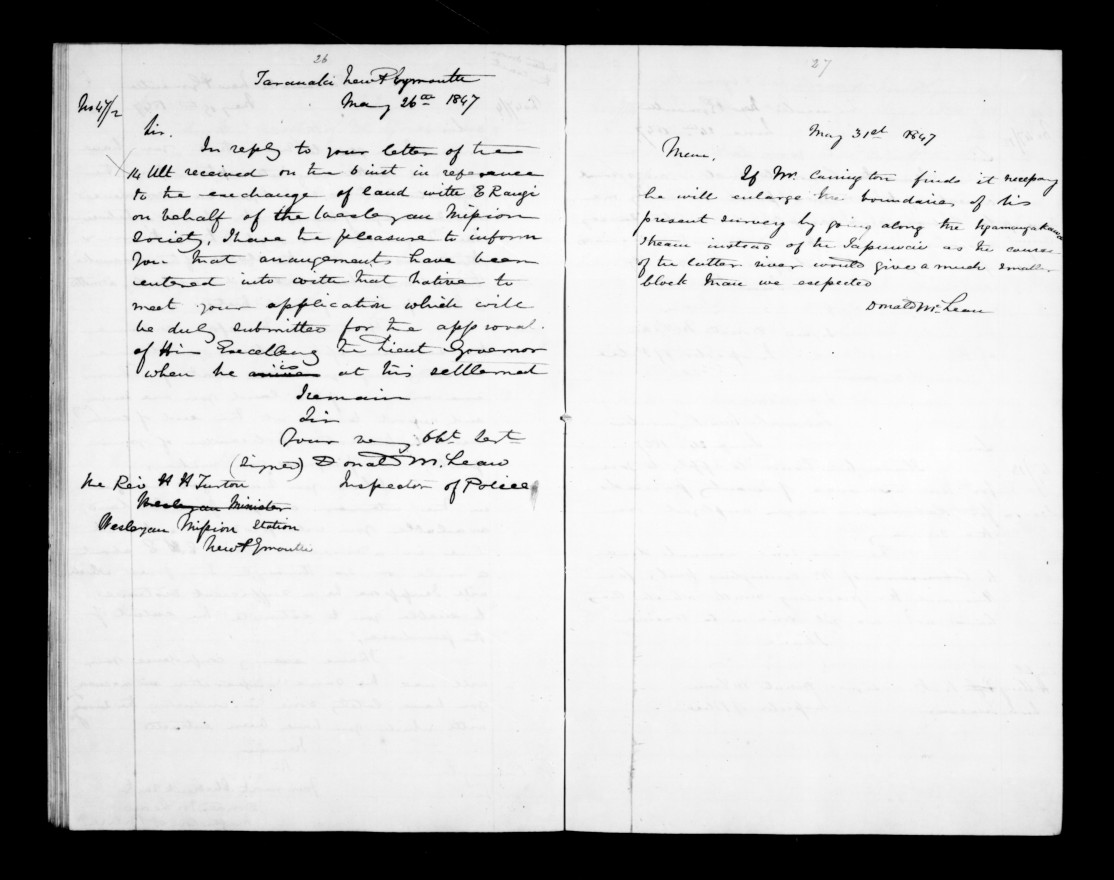 26
Taranaki New Plymouth
No 47/2 May 26th 1847
Sir.
In reply to your letter of the
14 Ult received on the 6 inst in reference
to the exchange of land with E Rangi
on behalf of the Wesleyan Mission
Society, I have the pleasure to inform
you that arrangements have been
entered into with that Native to
meet your application which will
be duly submitted for the approval
of His Excellency the Lieut Governor
when he arrives at this settlement
I remain
Sir
Your very obt Sert
(Signed) Donald McLean
The Rev H H Turton Inspector of Police
Wesleyan Minister
Wesleyan Mission Station
New Plymouth
27
May 31st 1847
Memo,
If Mr. Carrington finds it necessary
he will enlarge the boundaries of his
present survey by going along the Ngamangakana
stream instead of the Tapuwai as the course
of the latter river would give a much smaller
block than we expected
Donald McLean